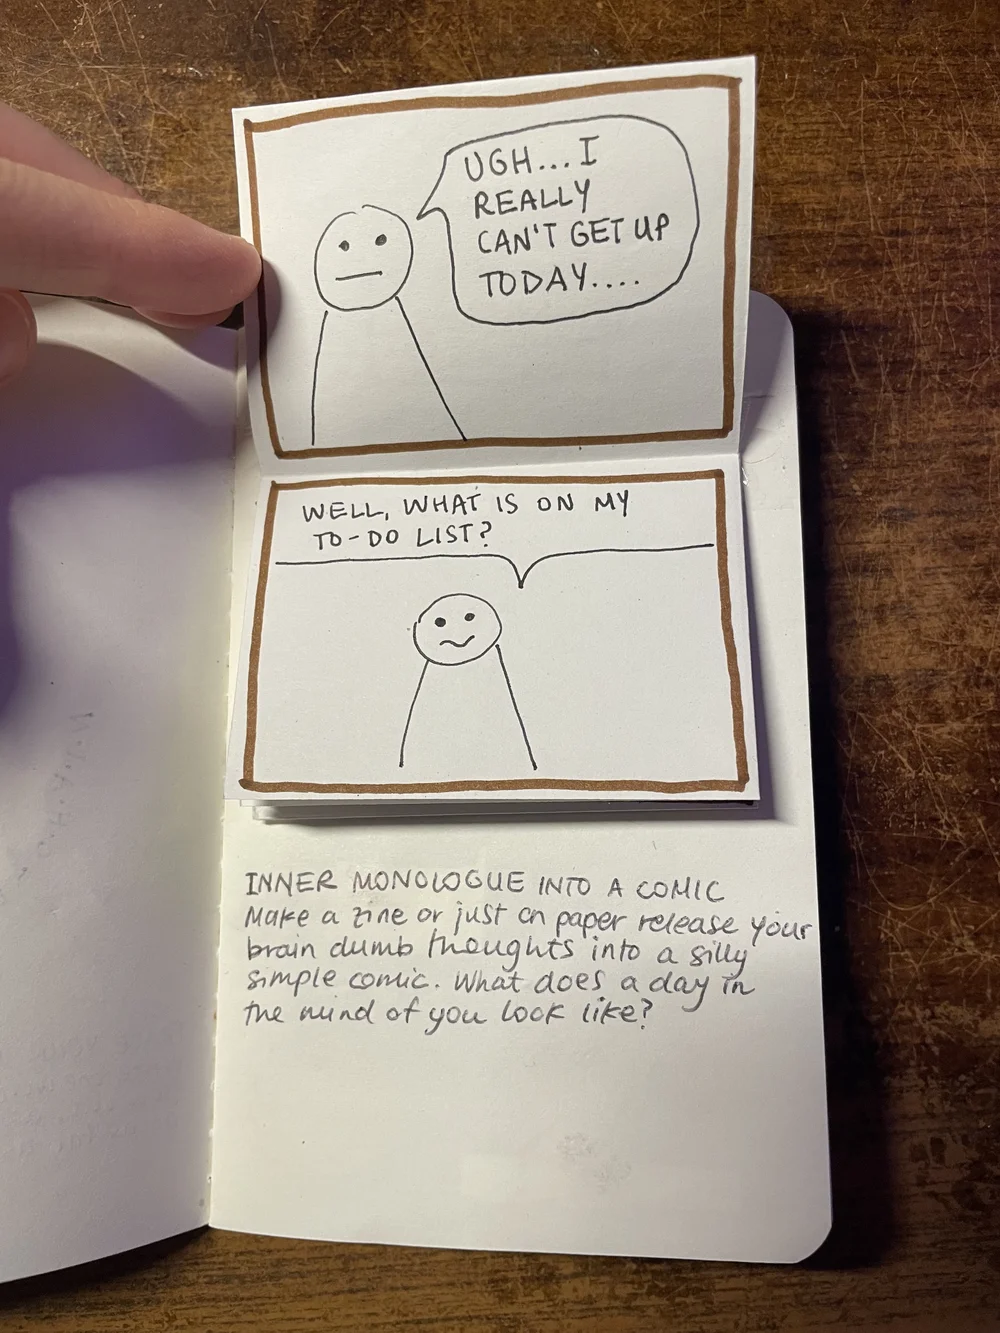 UGH... I
REALLY
CAN'T GET UP
TODAY....
WELL, WHAT IS ON MY
TO-DO LIST?
INNER MONOLOGUE INTO A COMIC
Make a zine or just on paper release your
brain dumb thoughts into a silly
simple comic. What does a day in
the mind of you look like?